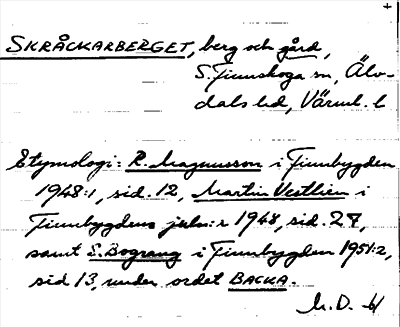 SKRÅCKARBERGET, berg och gård,
S. Finnskoga sn, Älv-
dals hd, Värml. l
Etymologi: R. Magnusson i Finnbygden
1948:1, sid. 12, Martin Vestlien i
Finnbygdens julnr 1948, sid. 27,
samt S. Bograng i Finnbygden 1951:2,
sid 13, under ordet BACKA.